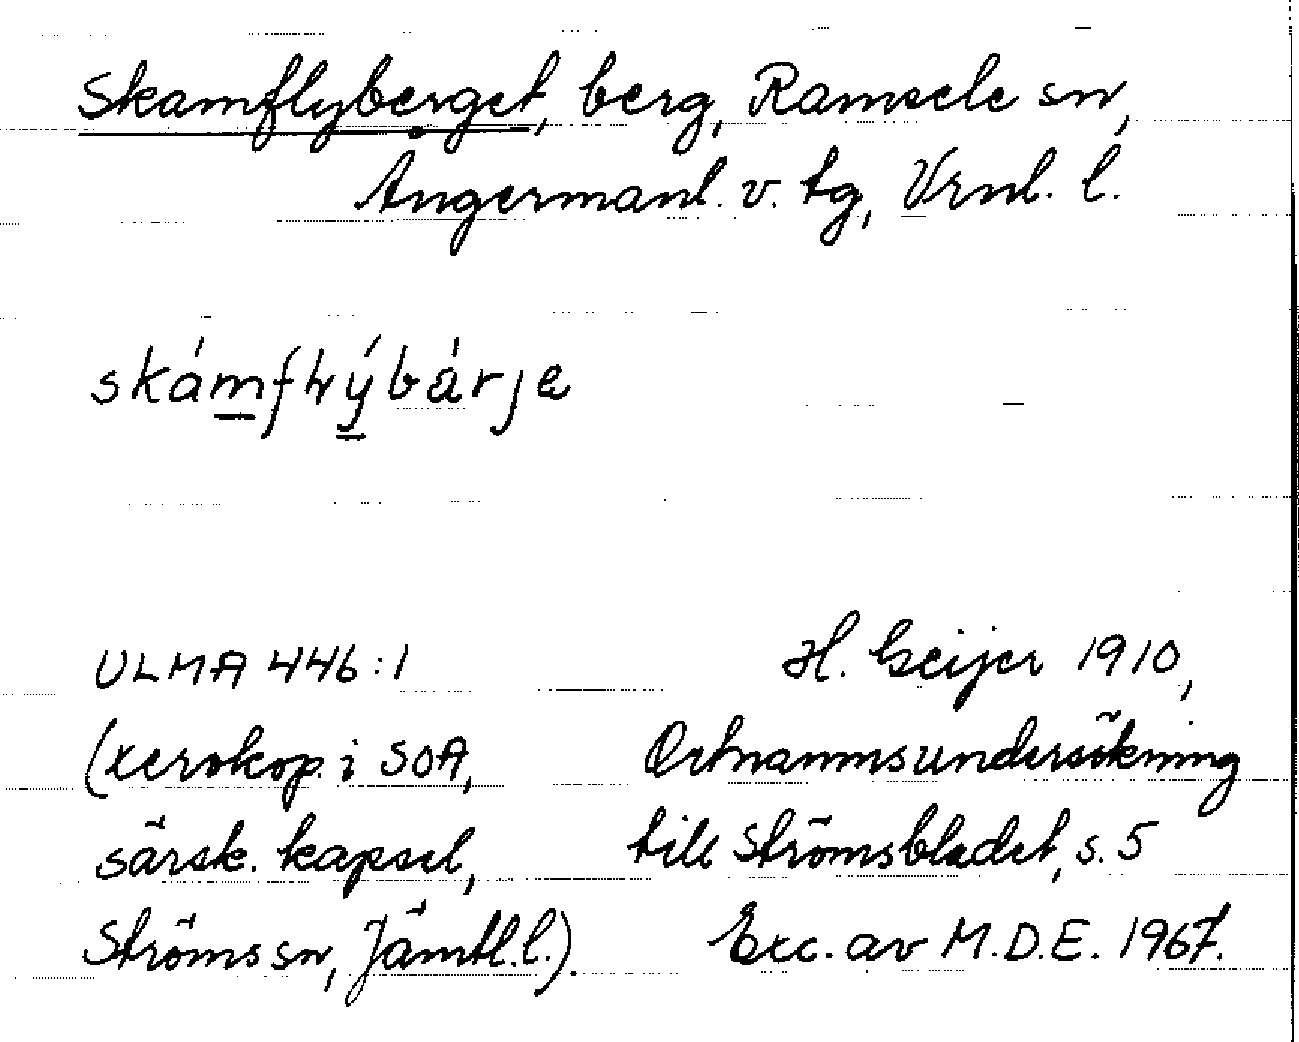 Skamflyberget, berg, Ramsele sn,
Ångermanl. v. tg, Vrnl. l.
ULMA 446:1
H. Geijer 1910,
(xerokop. i SOA,
Ortnamnsundersökning
särsk. kapsel,
till Strömsbladet, s. 5
Ströms sn, Jämtl. l.).
Exc. av M.D.E. 1967.